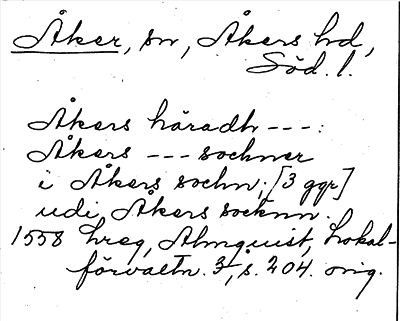 Åker, sn, Åkers hd,
Söd. l.
Åkers häradh ---:
Åkers --- sochner
i Åkers sochn; [3 ggr]
udi Åkers socknn.
1558 hreg, Almquist, Lokal-
förvaltn. 3, s. 204. orig.